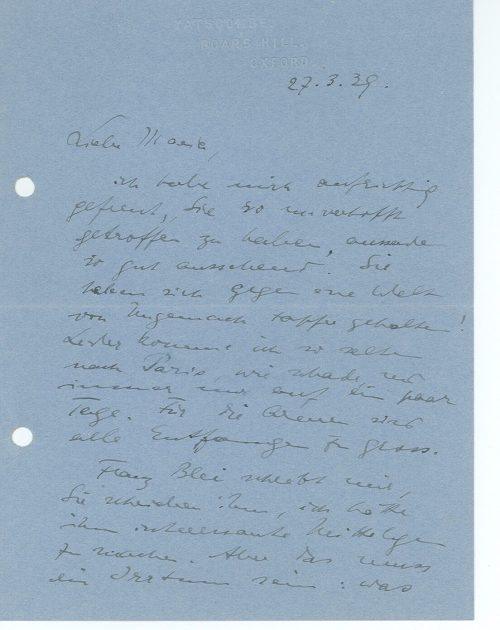 YATSCOMBE,
BOARS HILL,
OXFORD
27.3.39.
Liebe Maria,
ich habe mich aufrichtig
gefreut, Sie so unverhofft
getroffen zu haben,
so gut aussehend. Sie
haben sich gegen eine Welt
von Ungemach tapfer gehalten!
Leider komme ich so selten
nach Paris, wie schade, und
immer nur auf ein paar
Tage. Für die Armen sind
alle Entfernungen zu gross.
Franz Blei schreibt mir,
Sie schrieben ihm, ich hätte
ihm interessante Mitteilungen
zu machen. Aber das muss
ein Irrtum sein: was